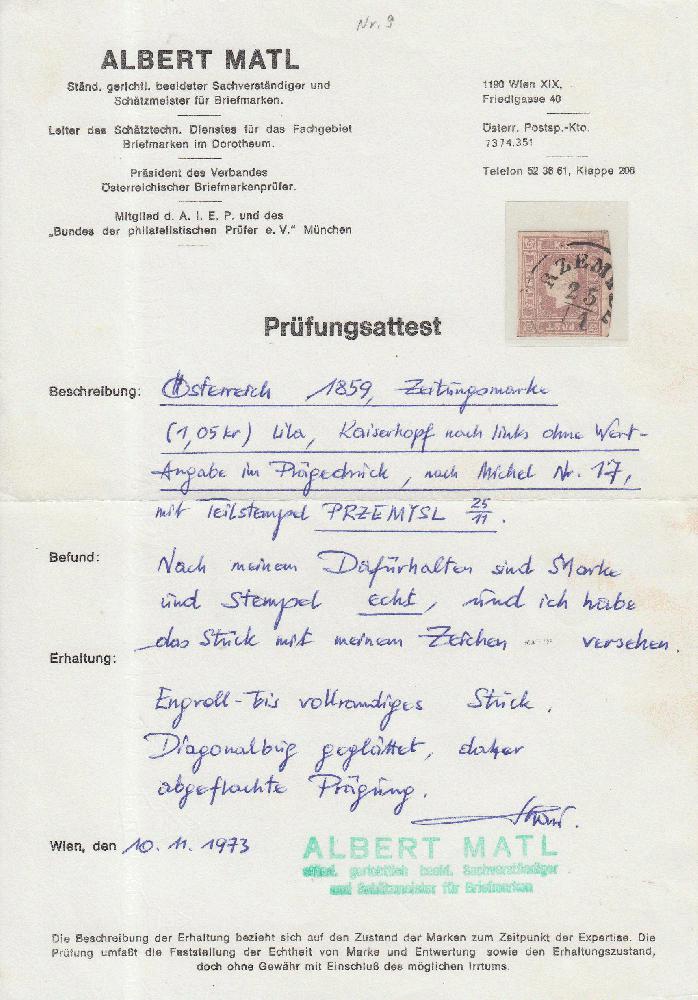 Nr. 9
ALBERT MATL
Ständ. gerichtl. beeideter Sachverständiger und
Schätzmeister für Briefmarken.
Leiter des Schätztechn. Dienstes für das Fachgebiet
Briefmarken im Dorotheum.
Präsident des Verbandes
Österreichischer Briefmarkenprüfer.
Mitglied d. A. I. E. P. und des
„Bundes der philatelistischen Prüfer e. V." München
1190 Wien XIX,
Friedlgasse 40
Österr. Postsp.-Kto.
7374.351
Telefon 52 36 61, Klappe 206
RZEMY
25
1
Prüfungsattest
Beschreibung: Österreich 1859, Zeitungsmarke
(1,05 kr) lila, Kaiserkopf nach links ohne Wert-
Angabe im Prägedruck, nach Michel Nr. 17,
mit Teilstempel PRZEMYSL 25/11.
Befund: Nach meinem Dafürhalten sind Marke
und Stempel echt, und ich habe
das Stück mit meinem Zeichen versehen.
Erhaltung:
Engroll- bis vollrandiges Stück.
Diagonalbug geglättet, daher
abgeflachte Prägung.
Wien, den 10. 11. 1973
ALBERT MATL
ständ. gerichtlich beeid. Sachverständiger
und Schätzmeister für Briefmarken
Die Beschreibung der Erhaltung bezieht sich auf den Zustand der Marken zum Zeitpunkt der Expertise. Die
Prüfung umfaßt die Feststellung der Echtheit von Marke und Entwertung sowie den Erhaltungszustand,
doch ohne Gewähr mit Einschluß des möglichen Irrtums.